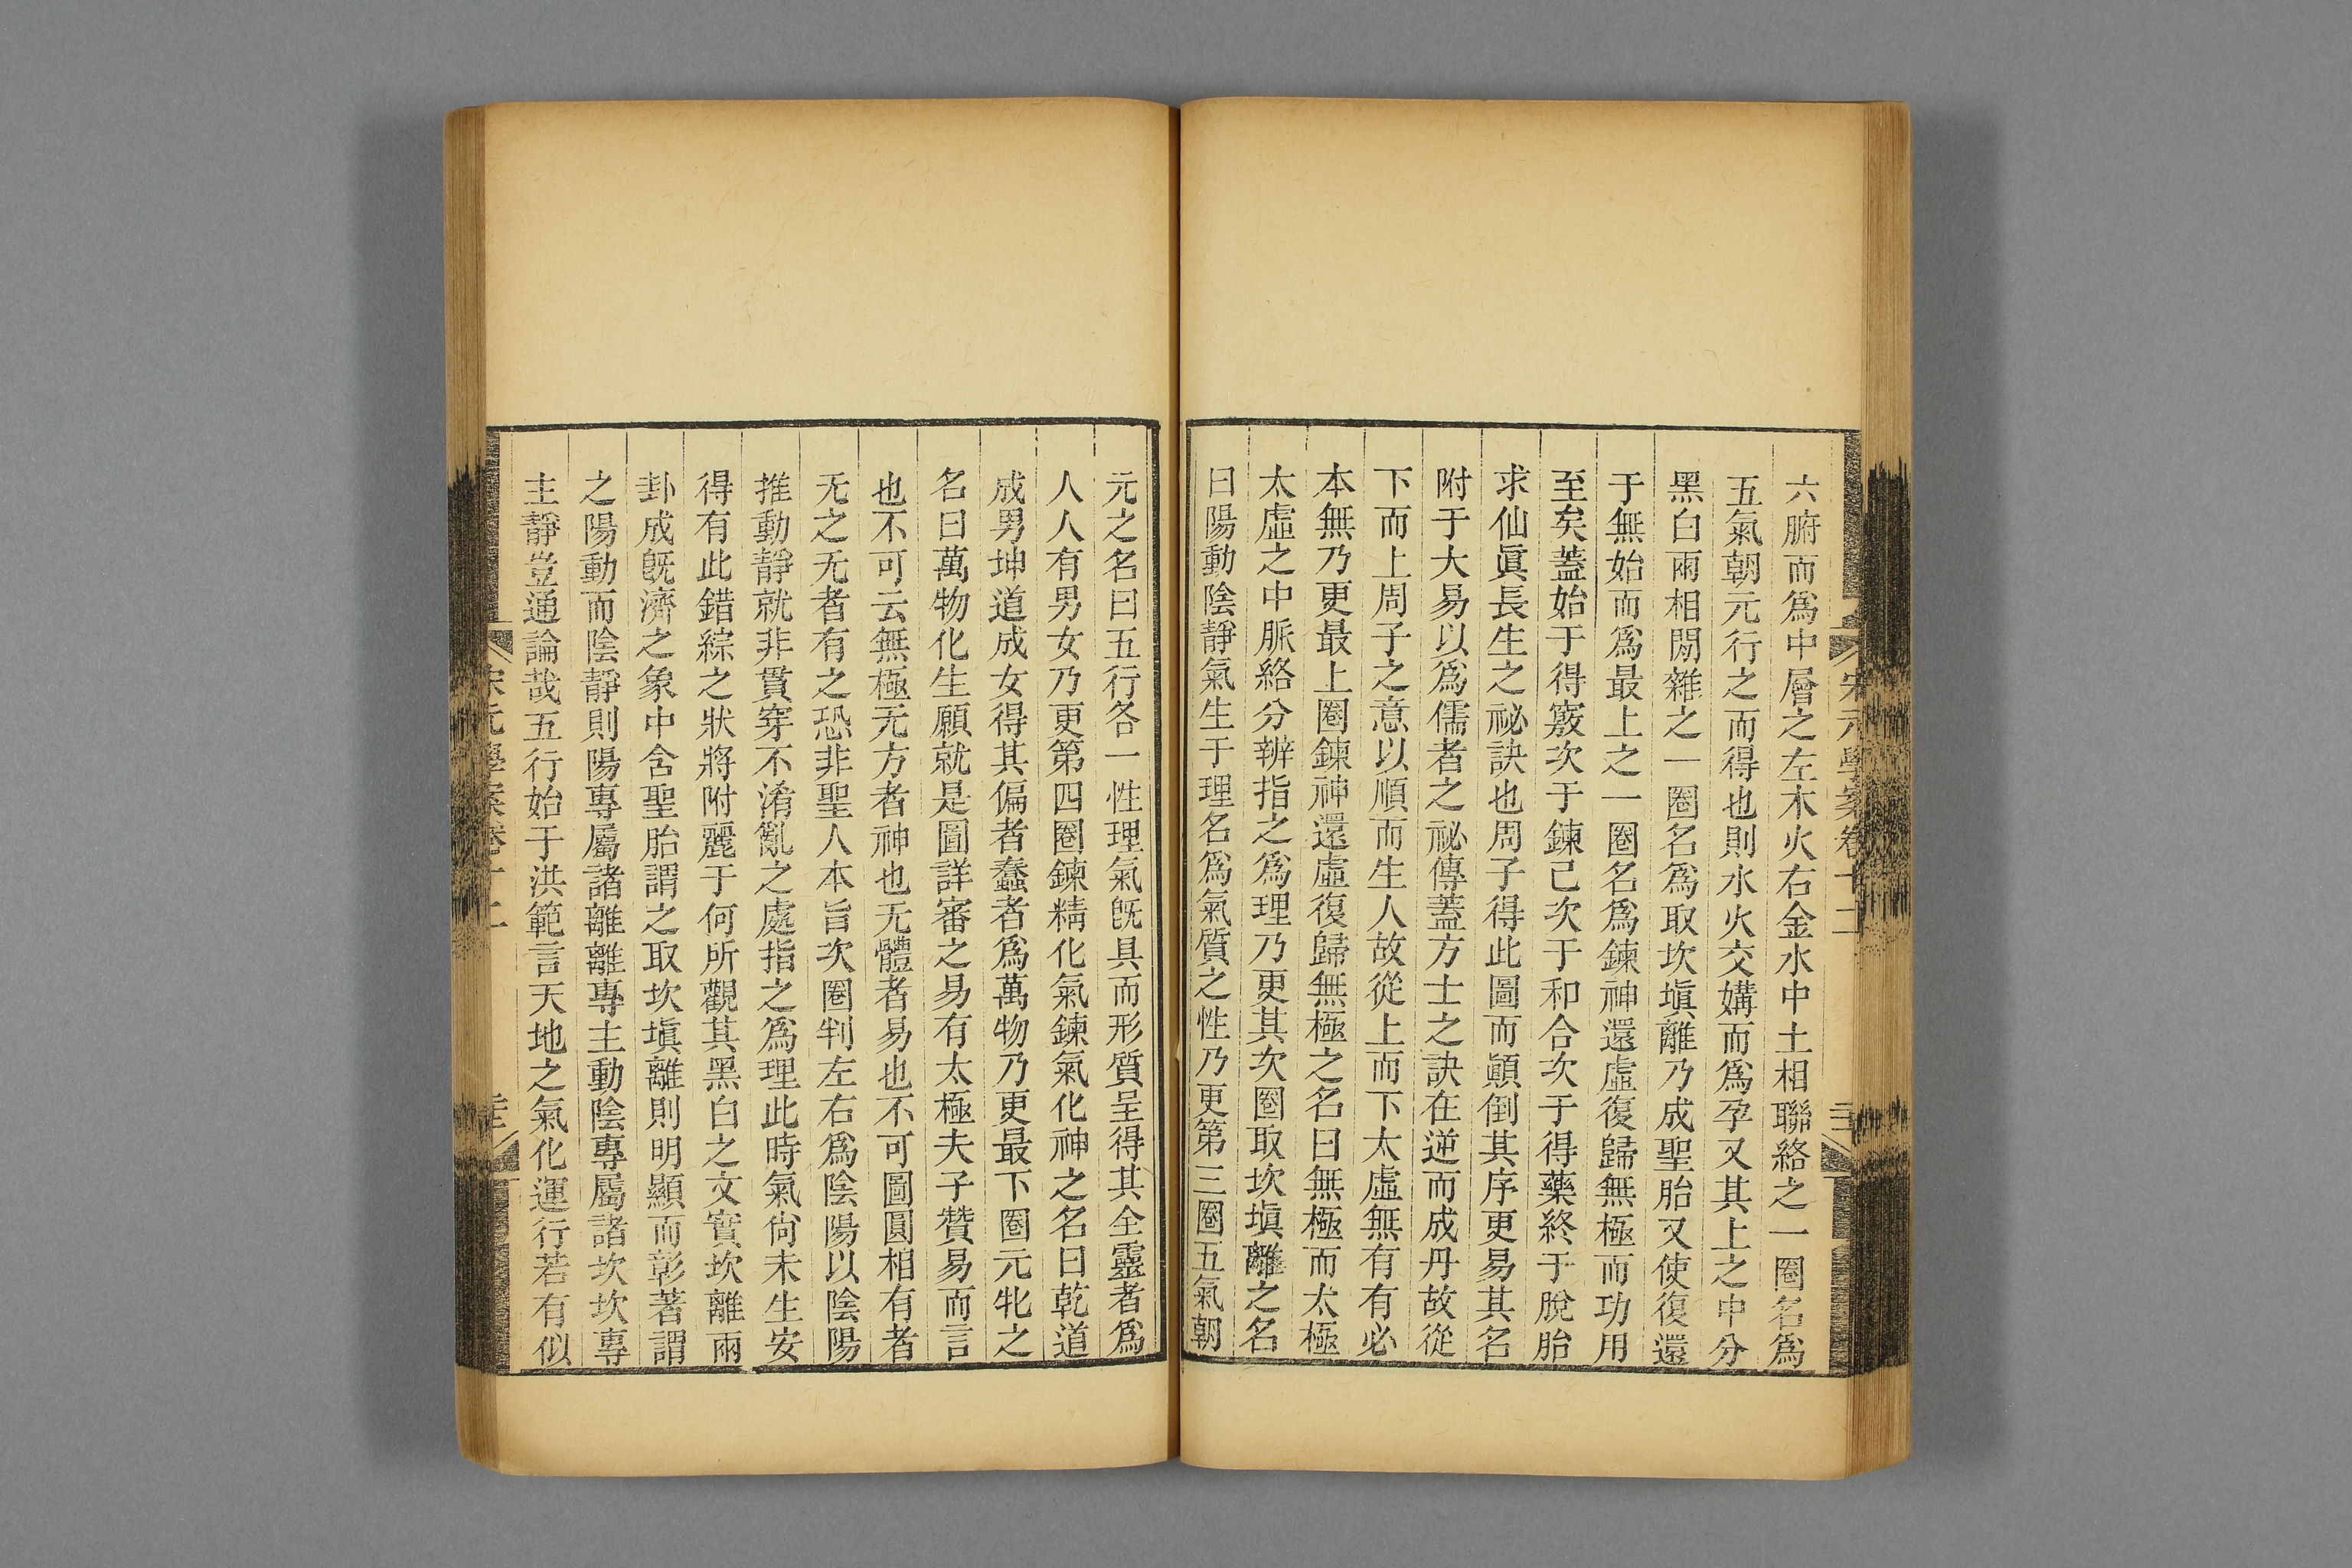 宋元學案卷十二
六腑而爲中層之左木火右金水中土相聯絡之一圈名爲
五氣朝元行之而得也則水火交媾而爲孕又其上之中分
黑白兩相閒雜之一圈名爲取坎塡離乃成聖胎又使復還
于無始而爲最上之一圈名爲鍊神還虛復歸無極而功用
至矣蓋始于得竅次于鍊己次于和合次于得藥終于脫胎
求仙眞長生之祕訣也周子得此圖而顚倒其序更易其名
附于大易以爲儒者之祕傳蓋方士之訣在逆而成丹故從
下而上周子之意以順而生人故從上而下太虛無有有必
本無乃更最上圈鍊神還虛復歸無極之名曰無極而太極
太虛之中脈絡分辨指之爲理乃更其次圈取坎塡離之名
曰陽動陰靜氣生于理名爲氣質之性乃更第三圈五氣朝
元之名曰五行各一性理氣旣具而形質呈得其全靈者爲
人人有男女乃更第四圈鍊精化氣鍊氣化神之名曰乾道
成男坤道成女得其偏者蠢者爲萬物乃更最下圈元牝之
名曰萬物化生願就是圖詳審之易有太極夫子贊易而言
也不可云無極无方者神也无體者易也不可圖圓相有者
无之无者有之恐非聖人本旨次圈判左右爲陰陽以陰陽
推動靜就非貫穿不淆亂之處指之爲理此時氣尙未生安
得有此錯綜之狀將附麗于何所觀其黑白之文實坎離兩
卦成旣濟之象中含聖胎謂之取坎塡離則明顯而彰著謂
之陽動而陰靜則陽專屬諸離離專主動陰專屬諸坎坎專
主靜豈通論哉五行始于洪範言天地之氣化運行若有似
宋元學案卷十二